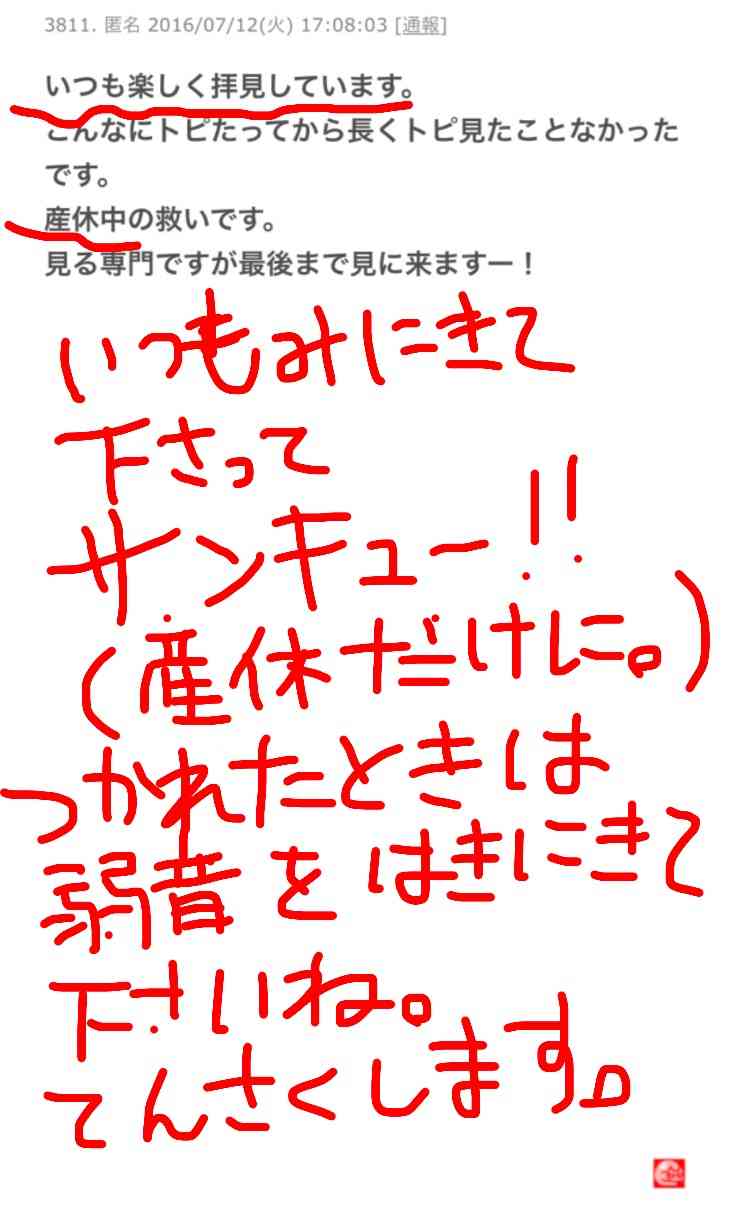 3811. 匿名 2016/07/12(火) 17:08:03 [通報]
いつも楽しく拝見しています。
こんなにトピたってから長くトピ見たことなかった
です。
産休中の救いです。
見る専門ですが最後まで見に来ますー！
いつもみにきて
下さって
サンキュー!!
(産休だけに。)
つかれたときは
弱音をはきにきて
下さいね。
てんさくします。